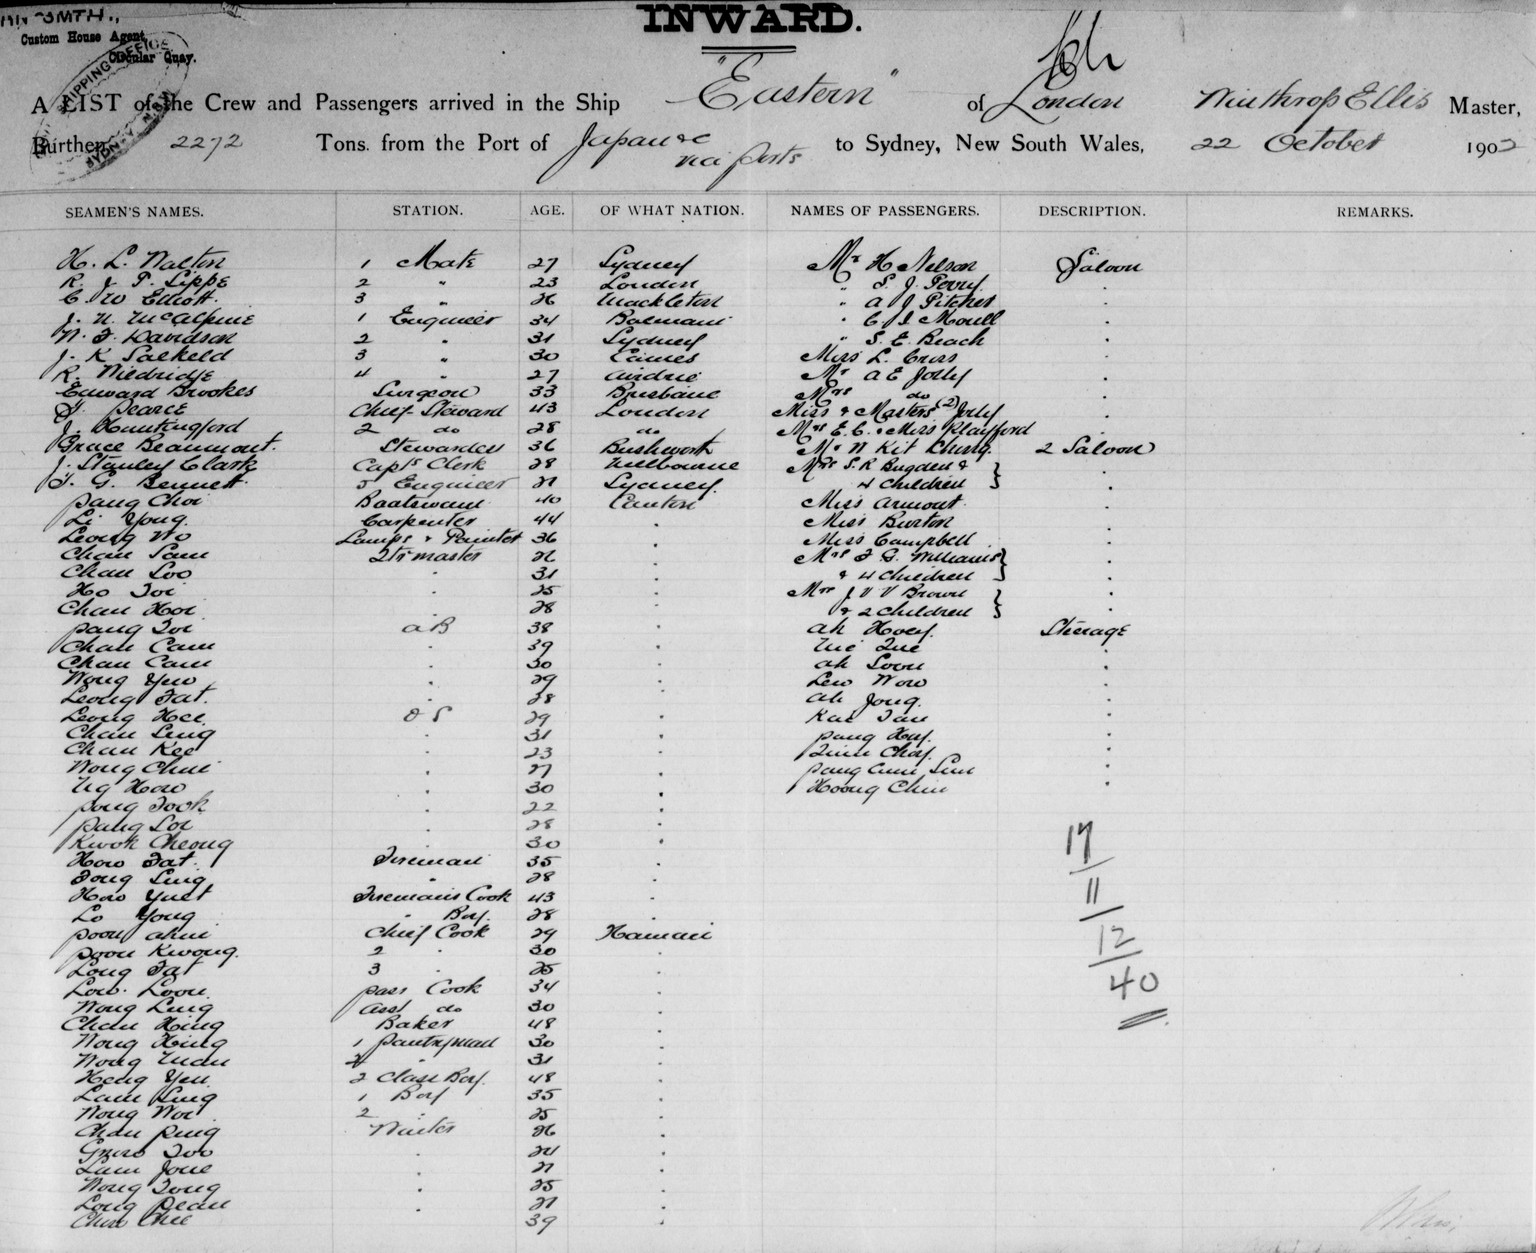 INWARD.
Custom House Agent,
Circular Quay.
SHIPPING OFFICE
A LIST of the Crew and Passengers arrived in the Ship "Eastern" of London Winthrop Ellis Master,
Burthen 2272 Tons. from the Port of Japan &c via ports to Sydney, New South Wales, 22 October 1902
SEAMEN'S NAMES. STATION. AGE. OF WHAT NATION. NAMES OF PASSENGERS. DESCRIPTION. REMARKS.
H. L. Walton 1 Mate 27 Sydney Mr H Nelson Saloon
R. J. P. Sipps 2 " 23 London " S. J. Perry
C. W Elliott 3 " 26 " A J Pitcher
J. N. McAlpine 1 Engineer 34 Balmain " C J Morell
N. F. Davidson 2 " 31 Sydney " S. E. Beach
J. K Salkeld 3 " 30 Miss L. Cross
R. 4 " 27 Airdrie Mr A E Jolly
Edward Brookes Surgeon 33 Brisbane Mrs do
Pearce Chief Steward 43 London Miss & Masters (2) Jolly
J. Huntingford 2 do 28 do Mrs E. C. & Miss Playfford
Grace Beaumont. Stewardess 36 Mr N Kit Chung. 2 Saloon
J. Stanley Clark Capts Clerk 28 Melbourne Mrs S. R Bugden &
F. G. Bennett 5 Engineer 21 Sydney 4 Children
Pang Choi Boatswain 40 Canton Miss Armont
Li Yong. Carpenter 44 Miss Burton
Leong Wo Lamps & Painter 36 Miss Campbell
Chan Sam Qtr master 26 Mrs F. G. Williams
Chan Loo 31 & 4 Children
Ho Toi 25 Mrs J V V Brown
Chan Hoi 28 & 2 Children
Pang Toi AB 38 Ah Hoey. Steerage
Chan Cam 39
Chan Cam 30 Ah Loon
Wong Yew 29 Lew Wow
Leong Fat. 28 Ah Jong.
Leong Hee OS 29
Chan Ling 31 Pang Hoy.
Chan Kee 23
Wong Chui 27
Ng How 30 Hoong Chin
Pong Took 22
Pang Loi 28
Kwok Cheong 30
How Fat Fireman 35
Fong Ling " 28
How Yuet Firemans Cook 43
Lo Yong " Boy. 28
Poon Chief Cook 29 Hainan
Poon Kwong. 2 " 30
Long Fat 3 " 25
Low Loon Pass Cook 34
Wong Ling Asst do 30
Chan Hing Baker 48
Wong Hing 1 Pantryman 30
Wong 2 " 31
Heng Yeu 2 Class Boy. 48
Lam Ling 1 Boy 35
Wong Woi 2 " 25
Chan Ping Waiter 26
Too 24
Lam 21
Wong Tong 25
Long 21
39
17
11
12
40